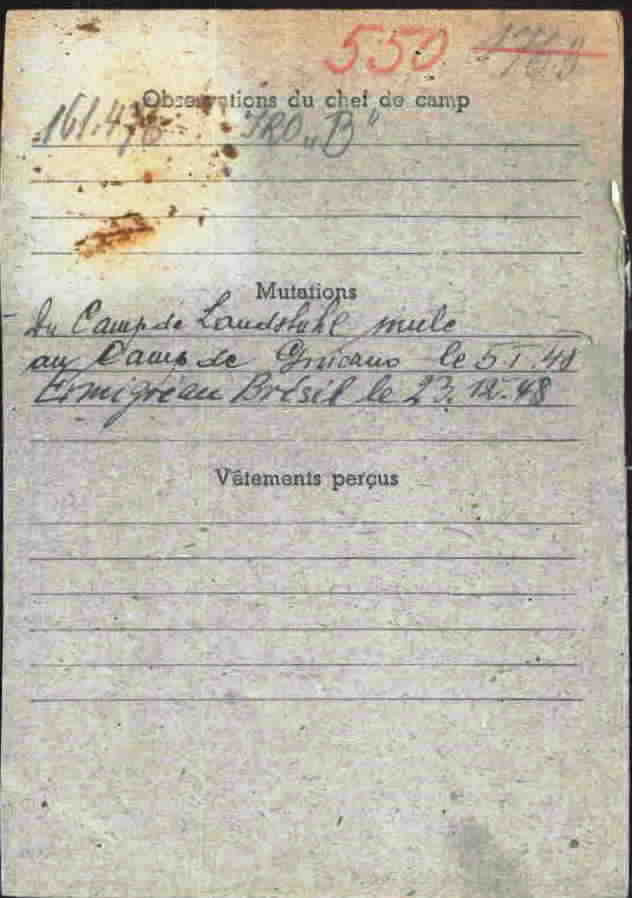 550
Observations du chef de camp
161.476 IRO "B"
Mutations
Du Camp de Landstuhl mute
au Camp de le 5.I.48
Emigré au Brésil le 23.12.48
Vêtements perçus